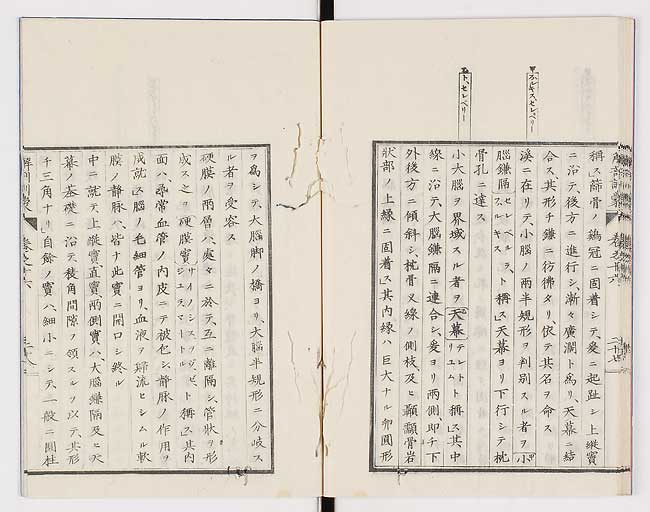 甲ハルキス、セレベリー
稱ス篩骨ノ鷄冠ニ固着シテ爰ニ起趾シ上縱竇
ニ沿テ、後方ニ進行シ、漸々廣濶ト爲リ、天幕ニ結
合ス其形チ鎌ニ彷彿タリ依テ其名ヲ命ス
溪ニ在リテ小腦ノ兩半規形ヲ判別スル者ヲ小
腦鎌隔セレベルラ、ハルキスト稱ス天幕ヨリ下行シテ枕
骨孔ニ達ス
乙ト、セレベリー
小大腦ヲ界域スル者ヲ天幕テントリユムト稱ス其中
線ニ沿テ大腦鎌隔ニ連合シ、爰ヨリ兩側即チ下
外後方ニ傾斜シ、枕骨叉線ノ側枝及ヒ顳顬骨岩
狀部ノ上緣ニ固着ス其内緣ハ巨大ナル卵圓形
ヲ爲シテ、大腦脚ノ橋ヨリ、大腦半規形ニ分岐ス
ル者ヲ受容ス
硬膜ノ兩層ハ處々ニ於テ互ニ離隔シ管狀ヲ形
成ス之ヲ硬膜竇ト稱ス其内
面ハ尋常血管ノ内皮ニテ被包シ靜脈ノ作用ヲ
成就ス腦ノ毛細管ヨリ、血液ヲ歸流セシムル軟
膜ノ靜脈ハ皆ナ此竇ニ開口シ終ル
中ニ就テ上縱竇直竇兩側竇ハ大腦鎌隔及ヒ天
幕ノ基礎ニ沿テ稜角間隙ヲ領スルヲ以テ、其形
チ三角ナリ自餘ノ竇ハ細小ニシテ一般ニ圓柱